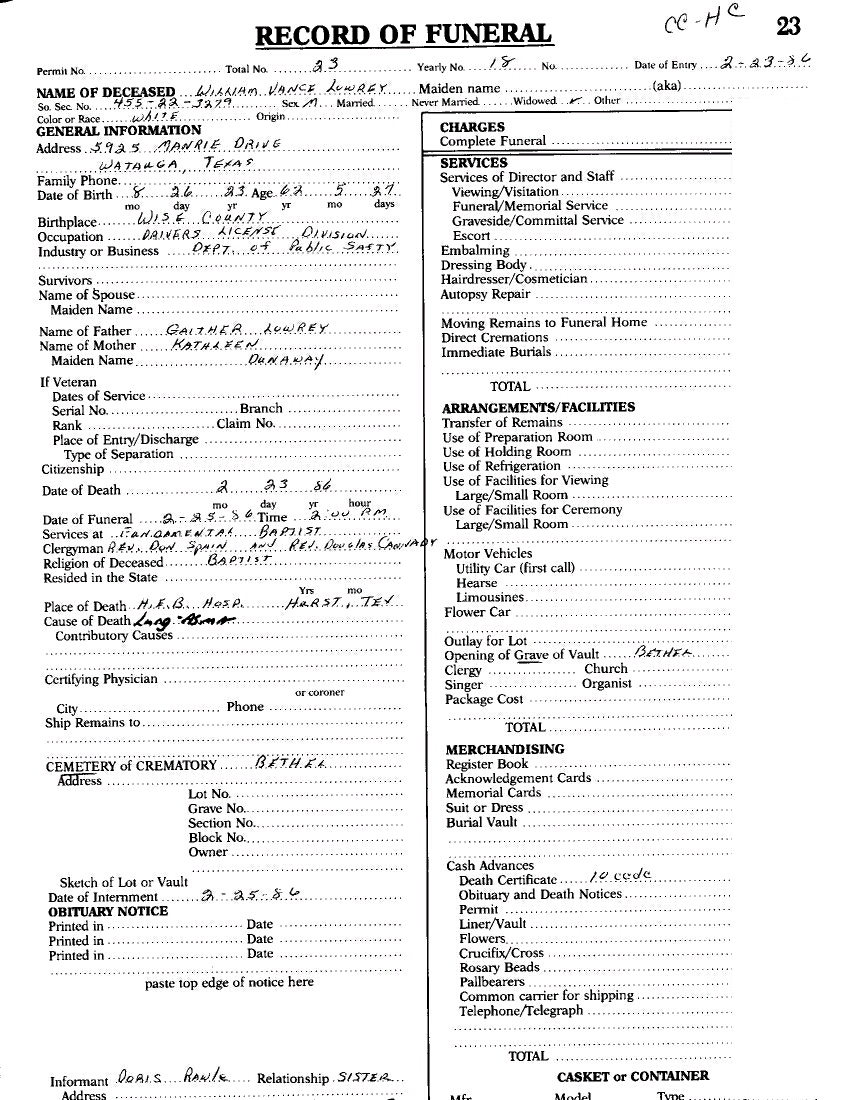 CC-HC 23
RECORD OF FUNERAL
Permit No. Total No. 23 Yearly No. 18 No. Date of Entry 2-23-86
NAME OF DECEASED WILLIAM VANCE LOWREY Maiden name (aka)
So. Sec. No. 455-22-3279 Sex M Married Never Married Widowed ✓ Other
Color or Race WHITE Origin
GENERAL INFORMATION
Address 5925 MANRIE DRIVE
WATAUGA, TEXAS
Family Phone
Date of Birth 8 26 23 Age 62 5 27
mo day yr yr mo days
Birthplace WISE COUNTY
Occupation DRIVERS LICENSE DIVISION
Industry or Business DEPT. of Public SAFTY
Survivors
Name of Spouse
Maiden Name
Name of Father GAITHER LOWREY
Name of Mother KATHLEEN
Maiden Name DUNAWAY
If Veteran
Dates of Service
Serial No. Branch
Rank Claim No.
Place of Entry/Discharge
Type of Separation
Citizenship
Date of Death 2 23 86
mo day yr hour
Date of Funeral 2-25-86 Time 2:00 PM
Services at FUNDAMENTAL BAPTIST
Clergyman REV. DON SPAIN AND REV. DOUGLAS CANNADY
Religion of Deceased BAPTIST
Resided in the State
Yrs mo
Place of Death H.E.B. HOSP. HURST, TEX
Cause of Death Lung
Contributory Causes
Certifying Physician
or coroner
City Phone
Ship Remains to
CEMETERY of CREMATORY BETHEL
Address
Lot No.
Grave No.
Section No.
Block No.
Owner
Sketch of Lot or Vault
Date of Internment 2-25-86
OBITUARY NOTICE
Printed in Date
Printed in Date
Printed in Date
paste top edge of notice here
Informant DORIS Relationship SISTER
Address
CHARGES
Complete Funeral
SERVICES
Services of Director and Staff
Viewing/Visitation
Funeral/Memorial Service
Graveside/Committal Service
Escort
Embalming
Dressing Body
Hairdresser/Cosmetician
Autopsy Repair
Moving Remains to Funeral Home
Direct Cremations
Immediate Burials
TOTAL
ARRANGEMENTS/FACILITIES
Transfer of Remains
Use of Preparation Room
Use of Holding Room
Use of Refrigeration
Use of Facilities for Viewing
Large/Small Room
Use of Facilities for Ceremony
Large/Small Room
Motor Vehicles
Utility Car (first call)
Hearse
Limousines
Flower Car
Outlay for Lot
Opening of Grave of Vault BETHEL
Clergy Church
Singer Organist
Package Cost
TOTAL
MERCHANDISING
Register Book
Acknowledgement Cards
Memorial Cards
Suit or Dress
Burial Vault
Cash Advances
Death Certificate 10
Obituary and Death Notices
Permit
Liner/Vault
Flowers
Crucifix/Cross
Rosary Beads
Pallbearers
Common carrier for shipping
Telephone/Telegraph
TOTAL
CASKET or CONTAINER
Mfr. Model Type